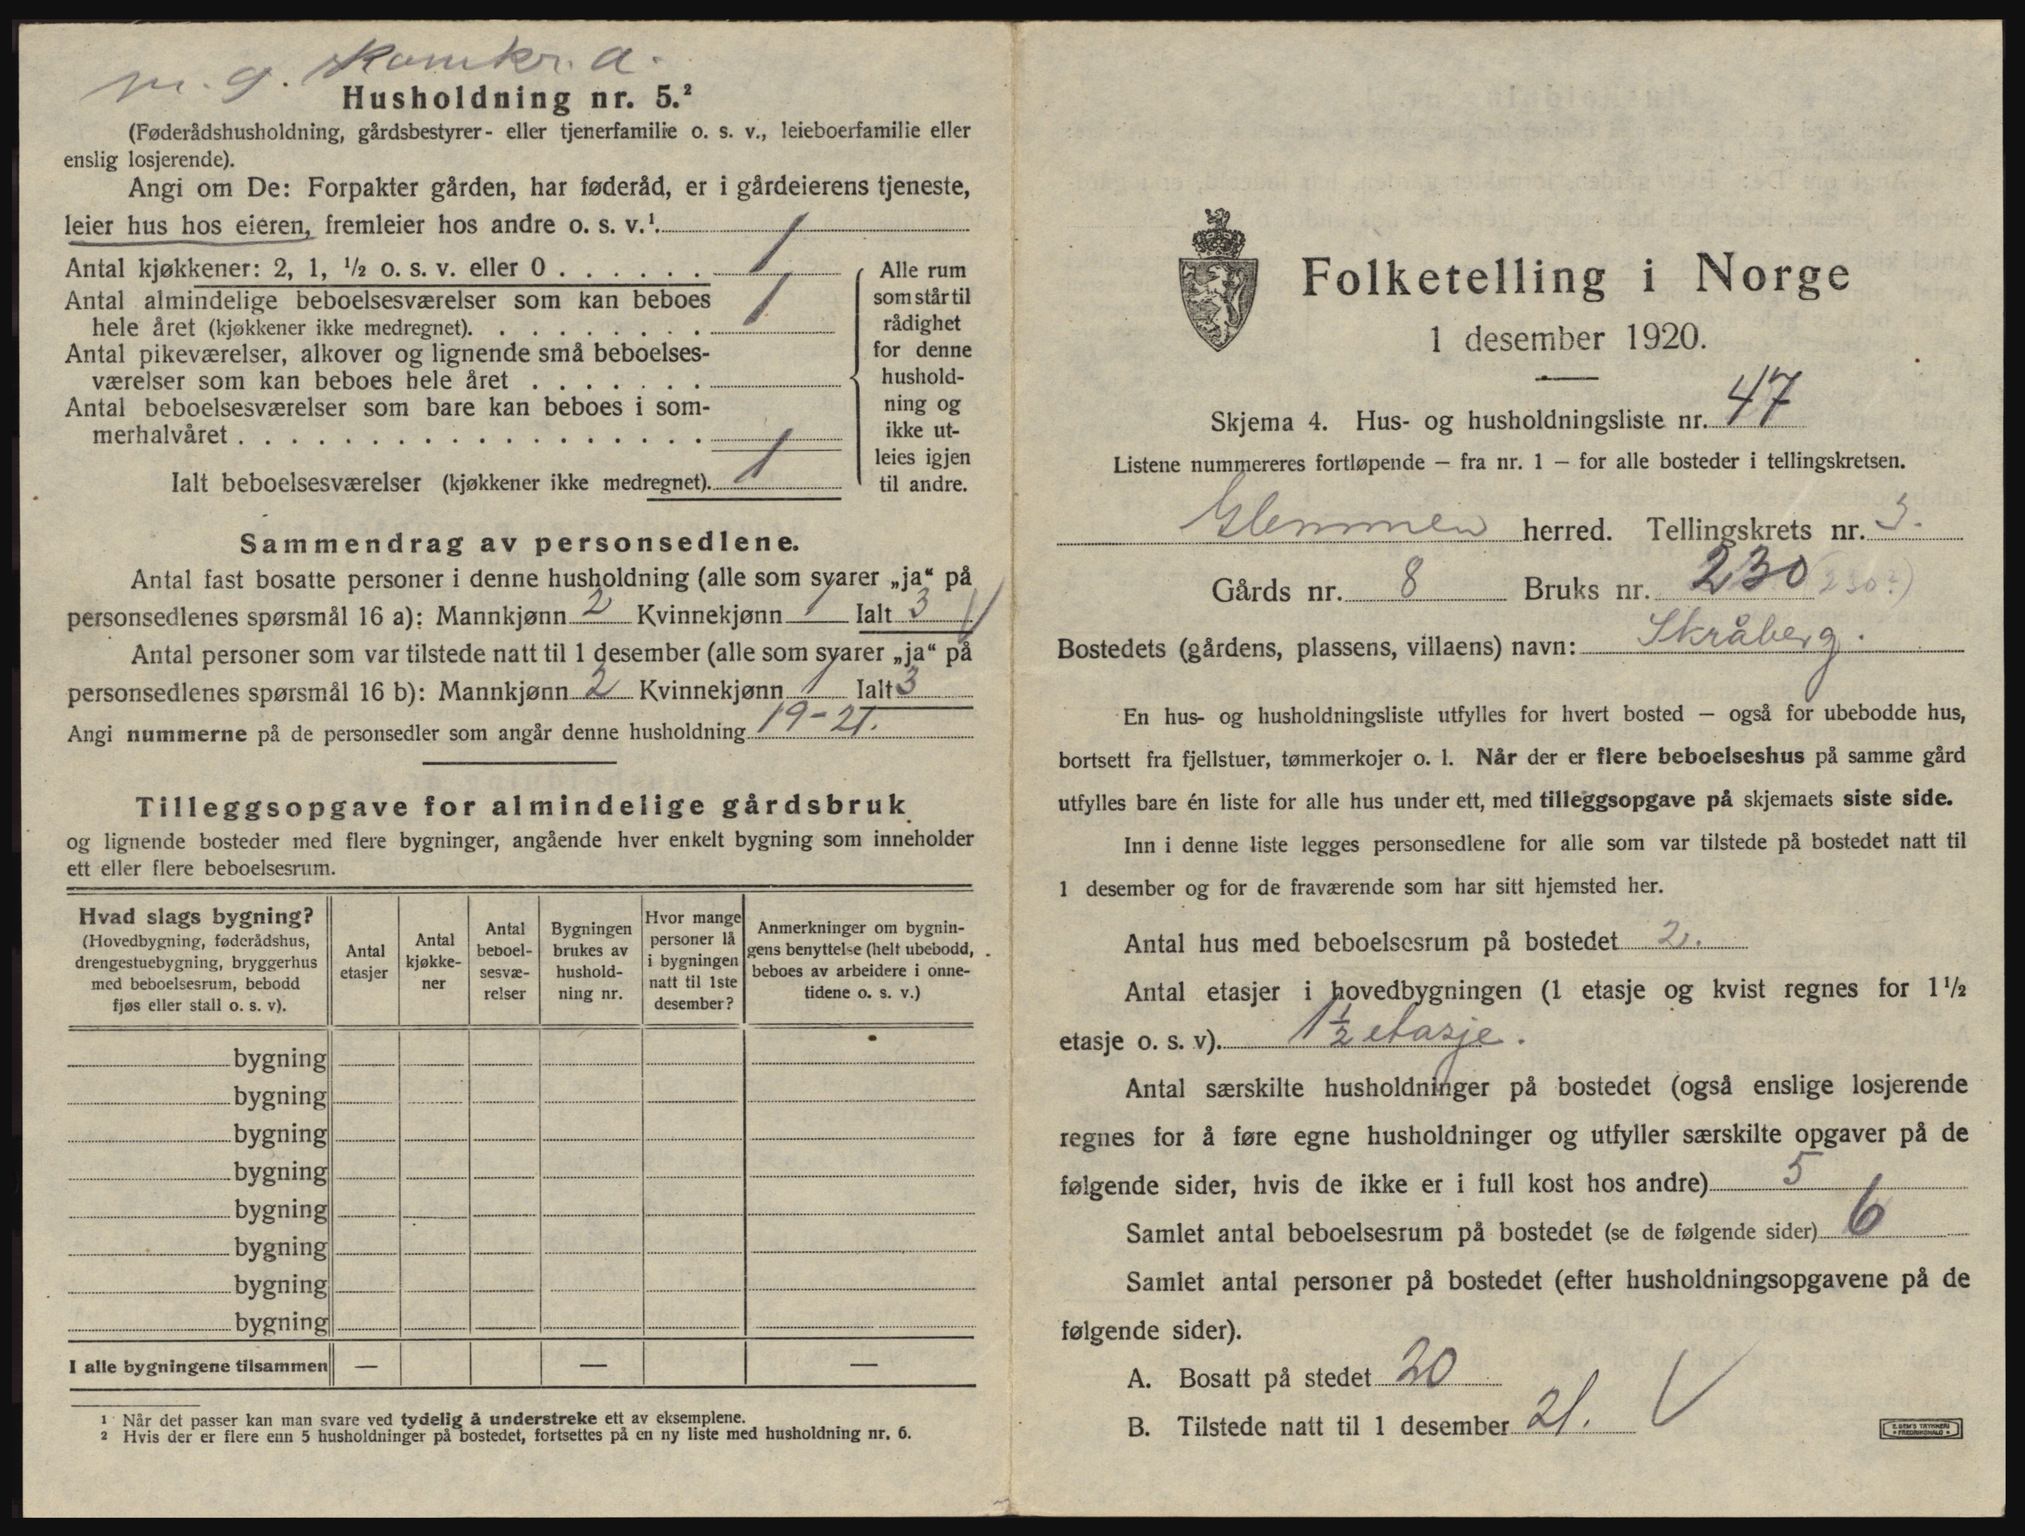 Husholdning nr. 5.²
(Føderådshusholdning, gårdsbestyrer- eller tjenerfamilie o. s. v., leieboerfamilie eller
enslig losjerende).
Angi om De: Forpakter gården, har føderåd, er i gårdeierens tjeneste,
leier hus hos eieren, fremleier hos andre o. s. v.¹.
Antal kjøkkener: 2, 1, ½ o. s. v. eller 0 . . . . . . 1
Antal almindelige beboelsesværelser som kan beboes
hele året (kjøkkener ikke medregnet). . . . . . . . . 1
Antal pikeværelser, alkover og lignende små beboelses-
værelser som kan beboes hele året . . . . . . .
Antal beboelsesværelser som bare kan beboes i som-
merhalvåret . . . . . . . . . . . . . . . . . .
Ialt beboelsesværelser (kjøkkener ikke medregnet). 1
Alle rum
som står til
rådighet
for denne
hushold-
ning og
ikke ut-
leies igjen
til andre.
Sammendrag av personsedlene.
Antal fast bosatte personer i denne husholdning (alle som svarer „ja“ på
personsedlenes spørsmål 16 a): Mannkjønn 2 Kvinnekjønn 1 Ialt 3
Antal personer som var tilstede natt til 1 desember (alle som svarer „ja“ på
personsedlenes spørsmål 16 b): Mannkjønn 2 Kvinnekjønn 1 Ialt 3
Angi nummerne på de personsedler som angår denne husholdning 19-21.
Tilleggsopgave for almindelige gårdsbruk
og lignende bosteder med flere bygninger, angående hver enkelt bygning som inneholder
ett eller flere beboelsesrum.
Hvad slags bygning?
(Hovedbygning, føderådshus,
drengestuebygning, bryggerhus
med beboelsesrum, bebodd
fjøs eller stall o. s. v).
Antal
etasjer
Antal
kjøkke-
ner
Antal
beboel-
sesvæ-
relser
Bygningen
brukes av
hushold-
ning nr.
Hvor mange
personer lå
i bygningen
natt til 1ste
desember?
Anmerkninger om bygnin-
gens benyttelse (helt ubebodd,
beboes av arbeidere i onne-
tidene o. s. v.)
bygning
bygning
bygning
bygning
bygning
bygning
bygning
bygning
I alle bygningene tilsammen — — —
¹ Når det passer kan man svare ved tydelig å understreke ett av eksemplene.
² Hvis der er flere enn 5 husholdninger på bostedet, fortsettes på en ny liste med husholdning nr. 6.
Folketelling i Norge
1 desember 1920.
Skjema 4. Hus- og husholdningsliste nr. 47
Listene nummereres fortløpende – fra nr. 1 – for alle bosteder i tellingskretsen.
Glemmen herred. Tellingskrets nr. 3.
Gårds nr. 8 Bruks nr. 230 (230?)
Bostedets (gårdens, plassens, villaens) navn: Skråberg.
En hus- og husholdningsliste utfylles for hvert bosted – også for ubebodde hus,
bortsett fra fjellstuer, tømmerkojer o. l. Når der er flere beboelseshus på samme gård
utfylles bare én liste for alle hus under ett, med tilleggsopgave på skjemaets siste side.
Inn i denne liste legges personsedlene for alle som var tilstede på bostedet natt til
1 desember og for de fraværende som har sitt hjemsted her.
Antal hus med beboelsesrum på bostedet 2.
Antal etasjer i hovedbygningen (1 etasje og kvist regnes for 1½
etasje o. s. v). 1½ etasje.
Antal særskilte husholdninger på bostedet (også enslige losjerende
regnes for å føre egne husholdninger og utfyller særskilte opgaver på de
følgende sider, hvis de ikke er i full kost hos andre) 5
Samlet antal beboelsesrum på bostedet (se de følgende sider) 6
Samlet antal personer på bostedet (efter husholdningsopgavene på de
følgende sider).
A. Bosatt på stedet 20
B. Tilstede natt til 1 desember 21.